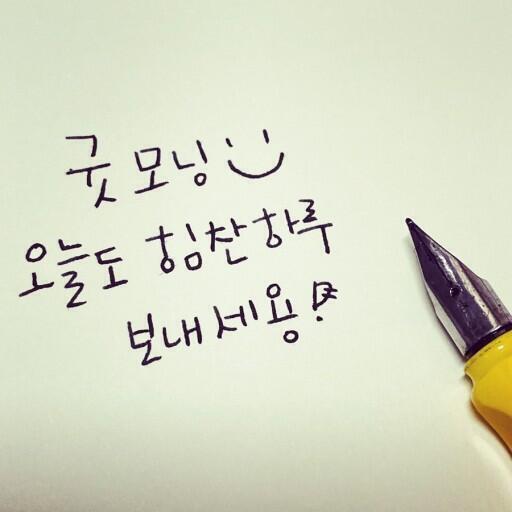 굿 모닝 :)
오늘도 힘찬 하루
보내세용!